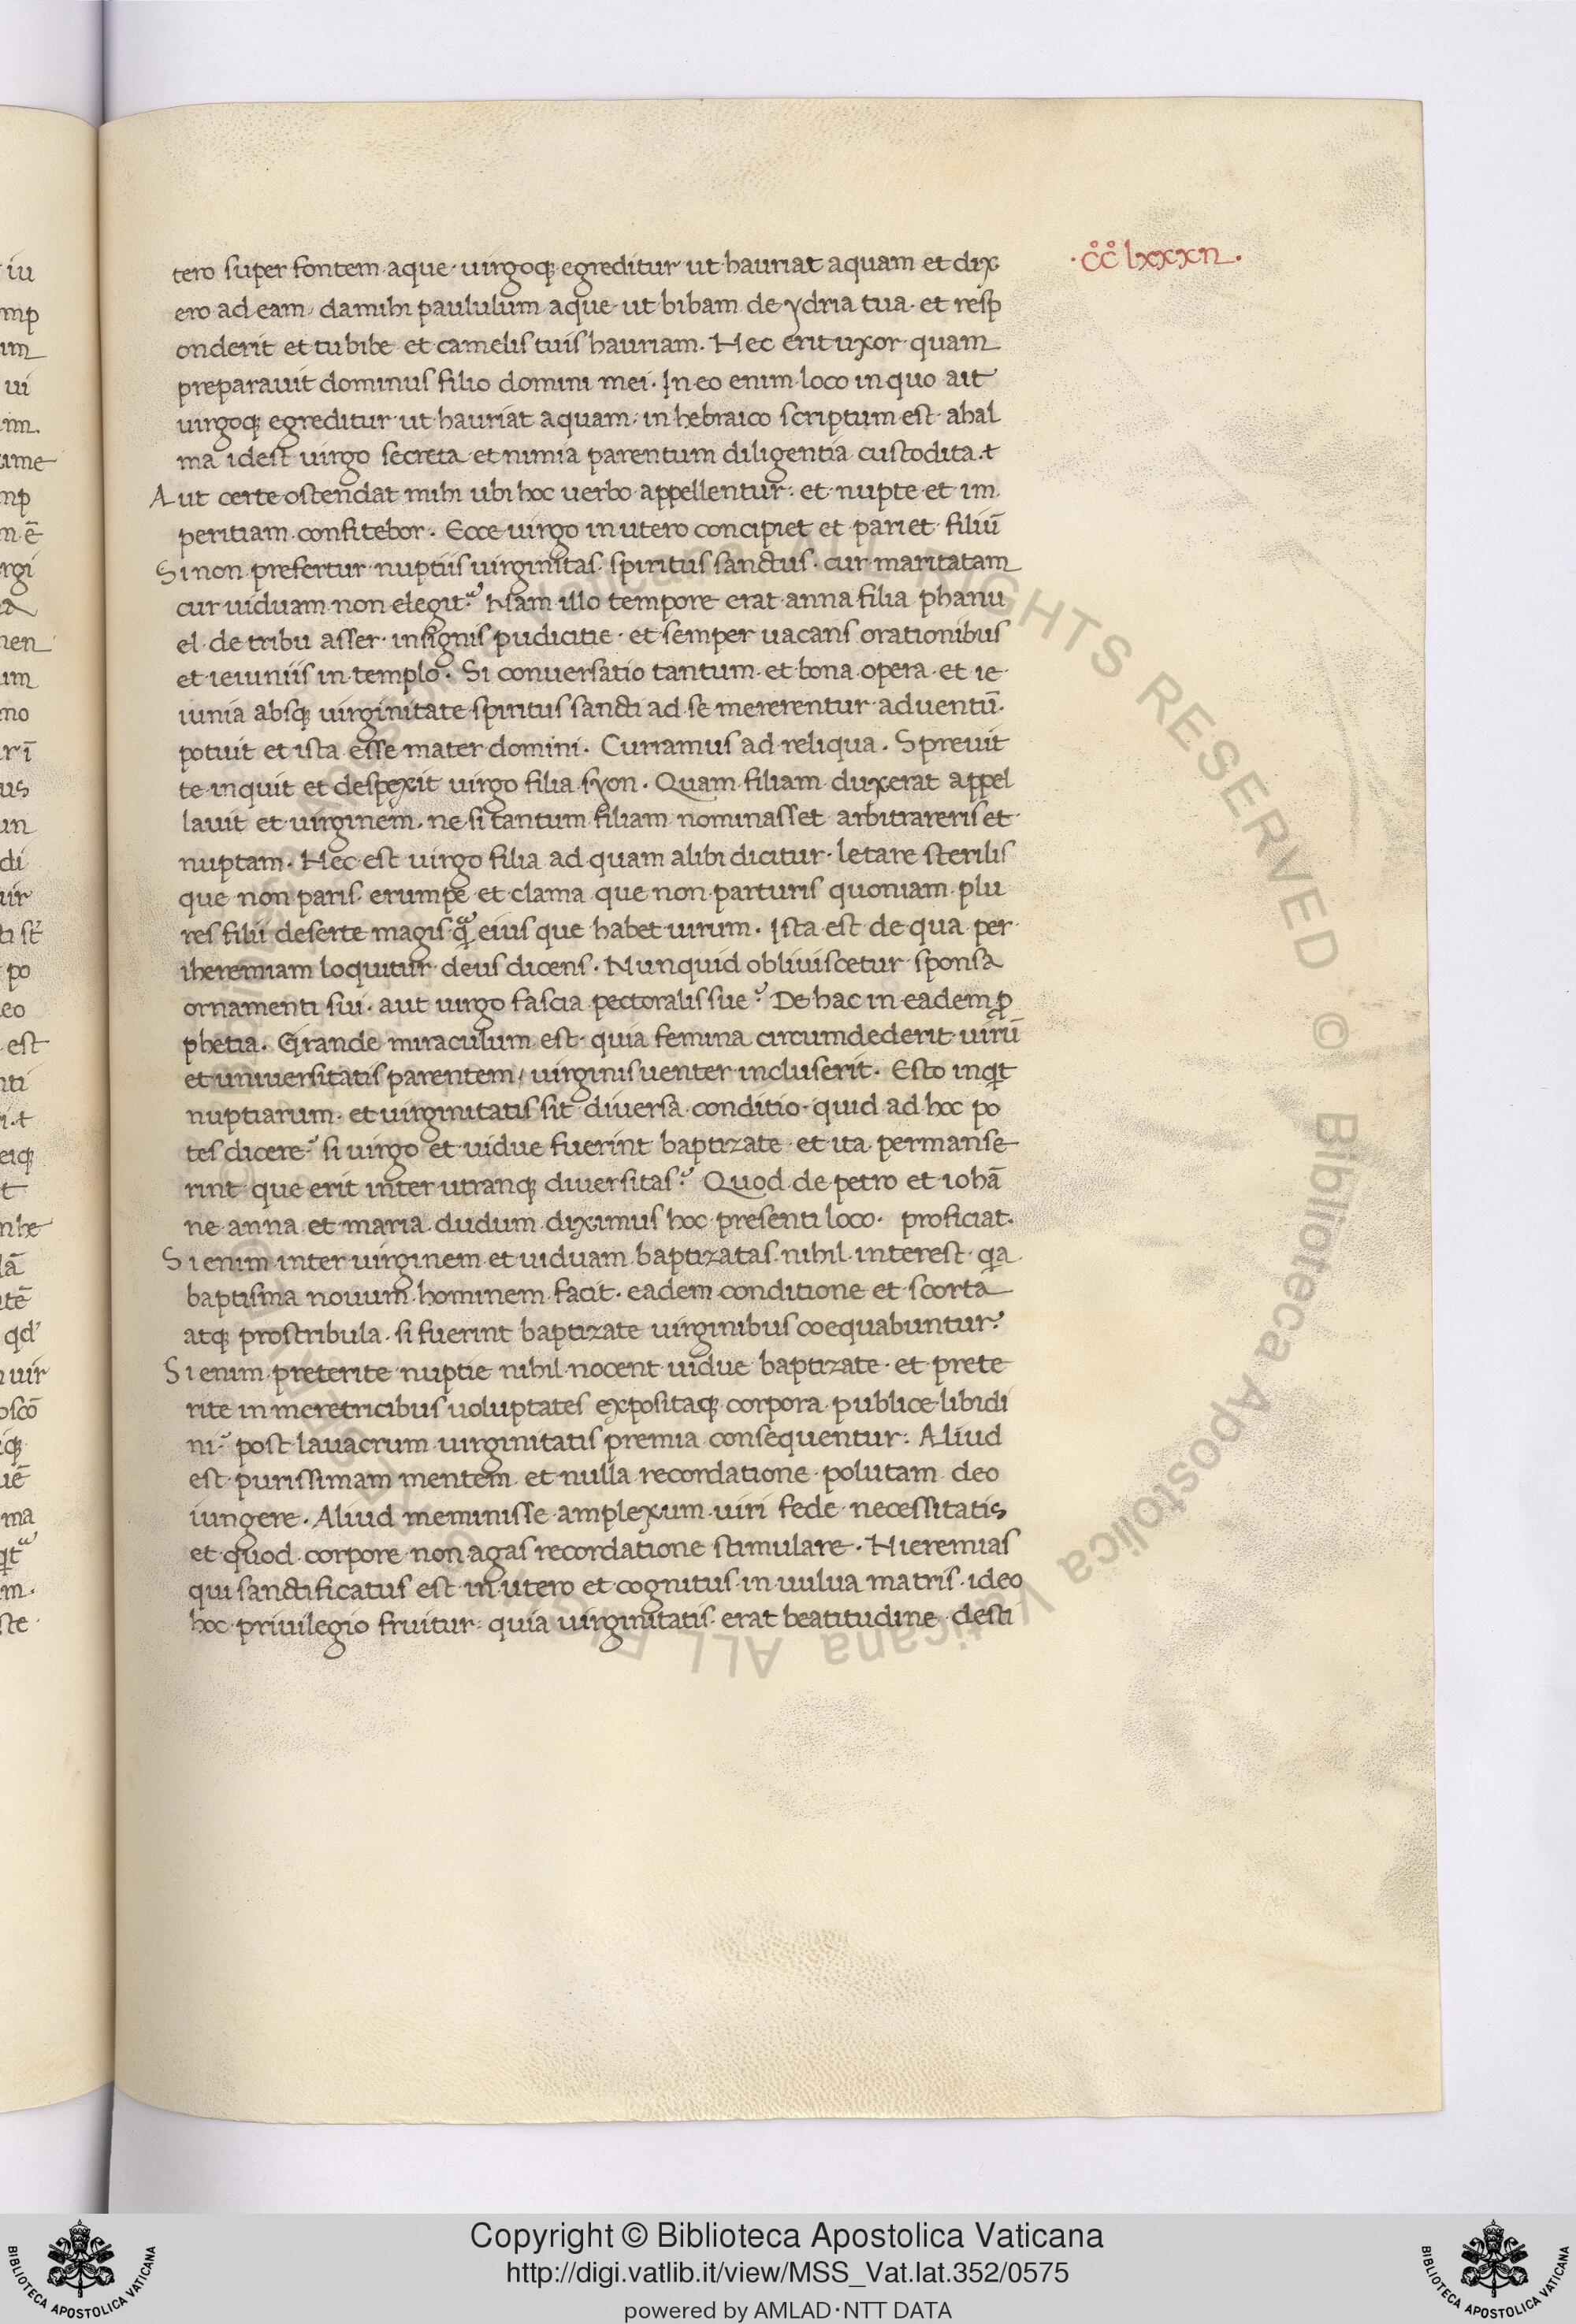 ·c̊c̊ lxxxii·
tero super fontem aque· uirgoq; egreditur ut hauriat aquam et dix
ero ad eam, damihi paululum aque· ut bibam de ydria tua· et resp
onderit et tu bibe· et camelis tuis hauriam. Hec erit uxor quam
preparauit dominus filio domini mei. In eo enim loco in quo ait
uirgoq; egreditur ut hauriat aquam· in hebraico scriptum est ahal
ma idest uirgo secreta et nimia parentum diligentia custodita.t
Aut certe ostendat mihi ubi hoc uerbo appellentur· et nupte et im
peritiam confitebor. Ecce uirgo in utero concipiet et pariet filiū
Si non prefertur nuptiis uirginitas· spiritus sanctus· cur maritatam
cur uiduam non elegit? Nam illo tempore erat anna filia phanu
el de tribu asser· insignis pudicitie· et semper uacans orationibus
et ieiuniis in templo. Si conuersatio tantum et bona opera et ie
iunia absq; uirginitate spiritus sancti ad se mererentur aduentū.
potuit et ista esse mater domini. Curramus ad reliqua. Spreuit
te inquit et despexit uirgo filia syon. Quam filiam duxerat appel
lauit et uirginem. ne si tantum filiam nominasset arbitrareris et
nuptam. Hec est uirgo filia ad quam alibi dicitur· letare sterilis
que non paris· erumpe et clama que non parturis quoniam plu
res filii deserte magis q̃ eius que habet uirum. Ista est de qua per
iheremiam loquitur deus dicens. Nunquid obliuiscetur sponsa
ornamenti sui· aut uirgo fascia pectoralis sue? De hac in eadem ꝓ
phetia. Grande miraculum est· quia femina circumdederit uirū
et uniuersitatis parentem, uirginis uenter incluserit. Esto inqt
nuptiarum· et uirginitatis sit diuersa conditio· quid ad hoc po
tes dicere? si uirgo et uidue fuerint baptizate et ita permanse
rint que erit inter utranq; diuersitas? Quod de petro et iohā
ne anna et maria dudum diximus hoc presenti loco· proficiat.
Si enim inter uirginem et uiduam baptizatas nihil interest· qa
baptisma nouum hominem facit· eadem conditione et scorta
atq; prostribula· si fuerint baptizate uirginibus coequabuntur?
Si enim preterite nuptie nihil nocent uidue baptizate· et prete
rite in meretricibus uoluptates expositaq; corpora publice libidi
ni? post lauacrum uirginitatis premia consequentur: Aliud
est purissimam mentem et nulla recordatione polutam deo
iungere. Aliud meminisse amplexum uiri fede necessitatis
et quod corpore non agas recordatione stimulare. Hieremias
qui sanctificatus est in utero et cognitus in uulua matris· ideo
hoc priuilegio fruitur· quia uirginitatis erat beatitudine desti
Copyright © Biblioteca Apostolica Vaticana
http://digi.vatlib.it/view/MSS_Vat.lat.352/0575
powered by AMLAD·NTT DATA